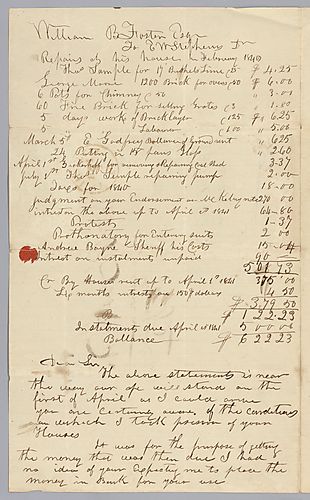 William B Foster Esqr
To E W Stephens Dr
Repairs at his house in February 1840
Thos Sample for 17 Bushels Lime 25 $ 4.25
George Moore 1200 Brick for ovens 50 $ 6.00
6 Pots for Chimney 50 " 3.00
60 Fire Brick for setting Grates " 1.00
5 days work of Bricklayer 125 $ 6.25
5 " " Laborer 100 " 5.00
March 5th E Godfrey Ballance of Ground rent " 625
24 Patern Glass " 2.60
April 1st removing & Repairing 3.37
July 1st Thos Semple repairing pump 2.00
Taxes for 1840 18.00
judgment on your Endorsement 270 00
interest on the above up to April 1841 64-80
Protest 1-37
Prothonatory for Entering suits 2 00
Andrew Bayne Sheriff his Costs 15-
Interest on instalments unpaid 90 =
501 73
Cr By House rent up to April 1st 1841 375 00
Six months interest on 150 dollars 4 50
$ 379 50
$ 122.23
Instalments due April 1st 1841 500 00
Ballance $ 622 23
Dear Sir
The above statement is near
the way our a/c will stand on the
first of April as I could
you are Certainly aware of the conditions
on which I took possion of your
Houses
It was for the purpose of getting
the money that was then due I had
no idea of your Expecting me to place the
money in Bank for your use